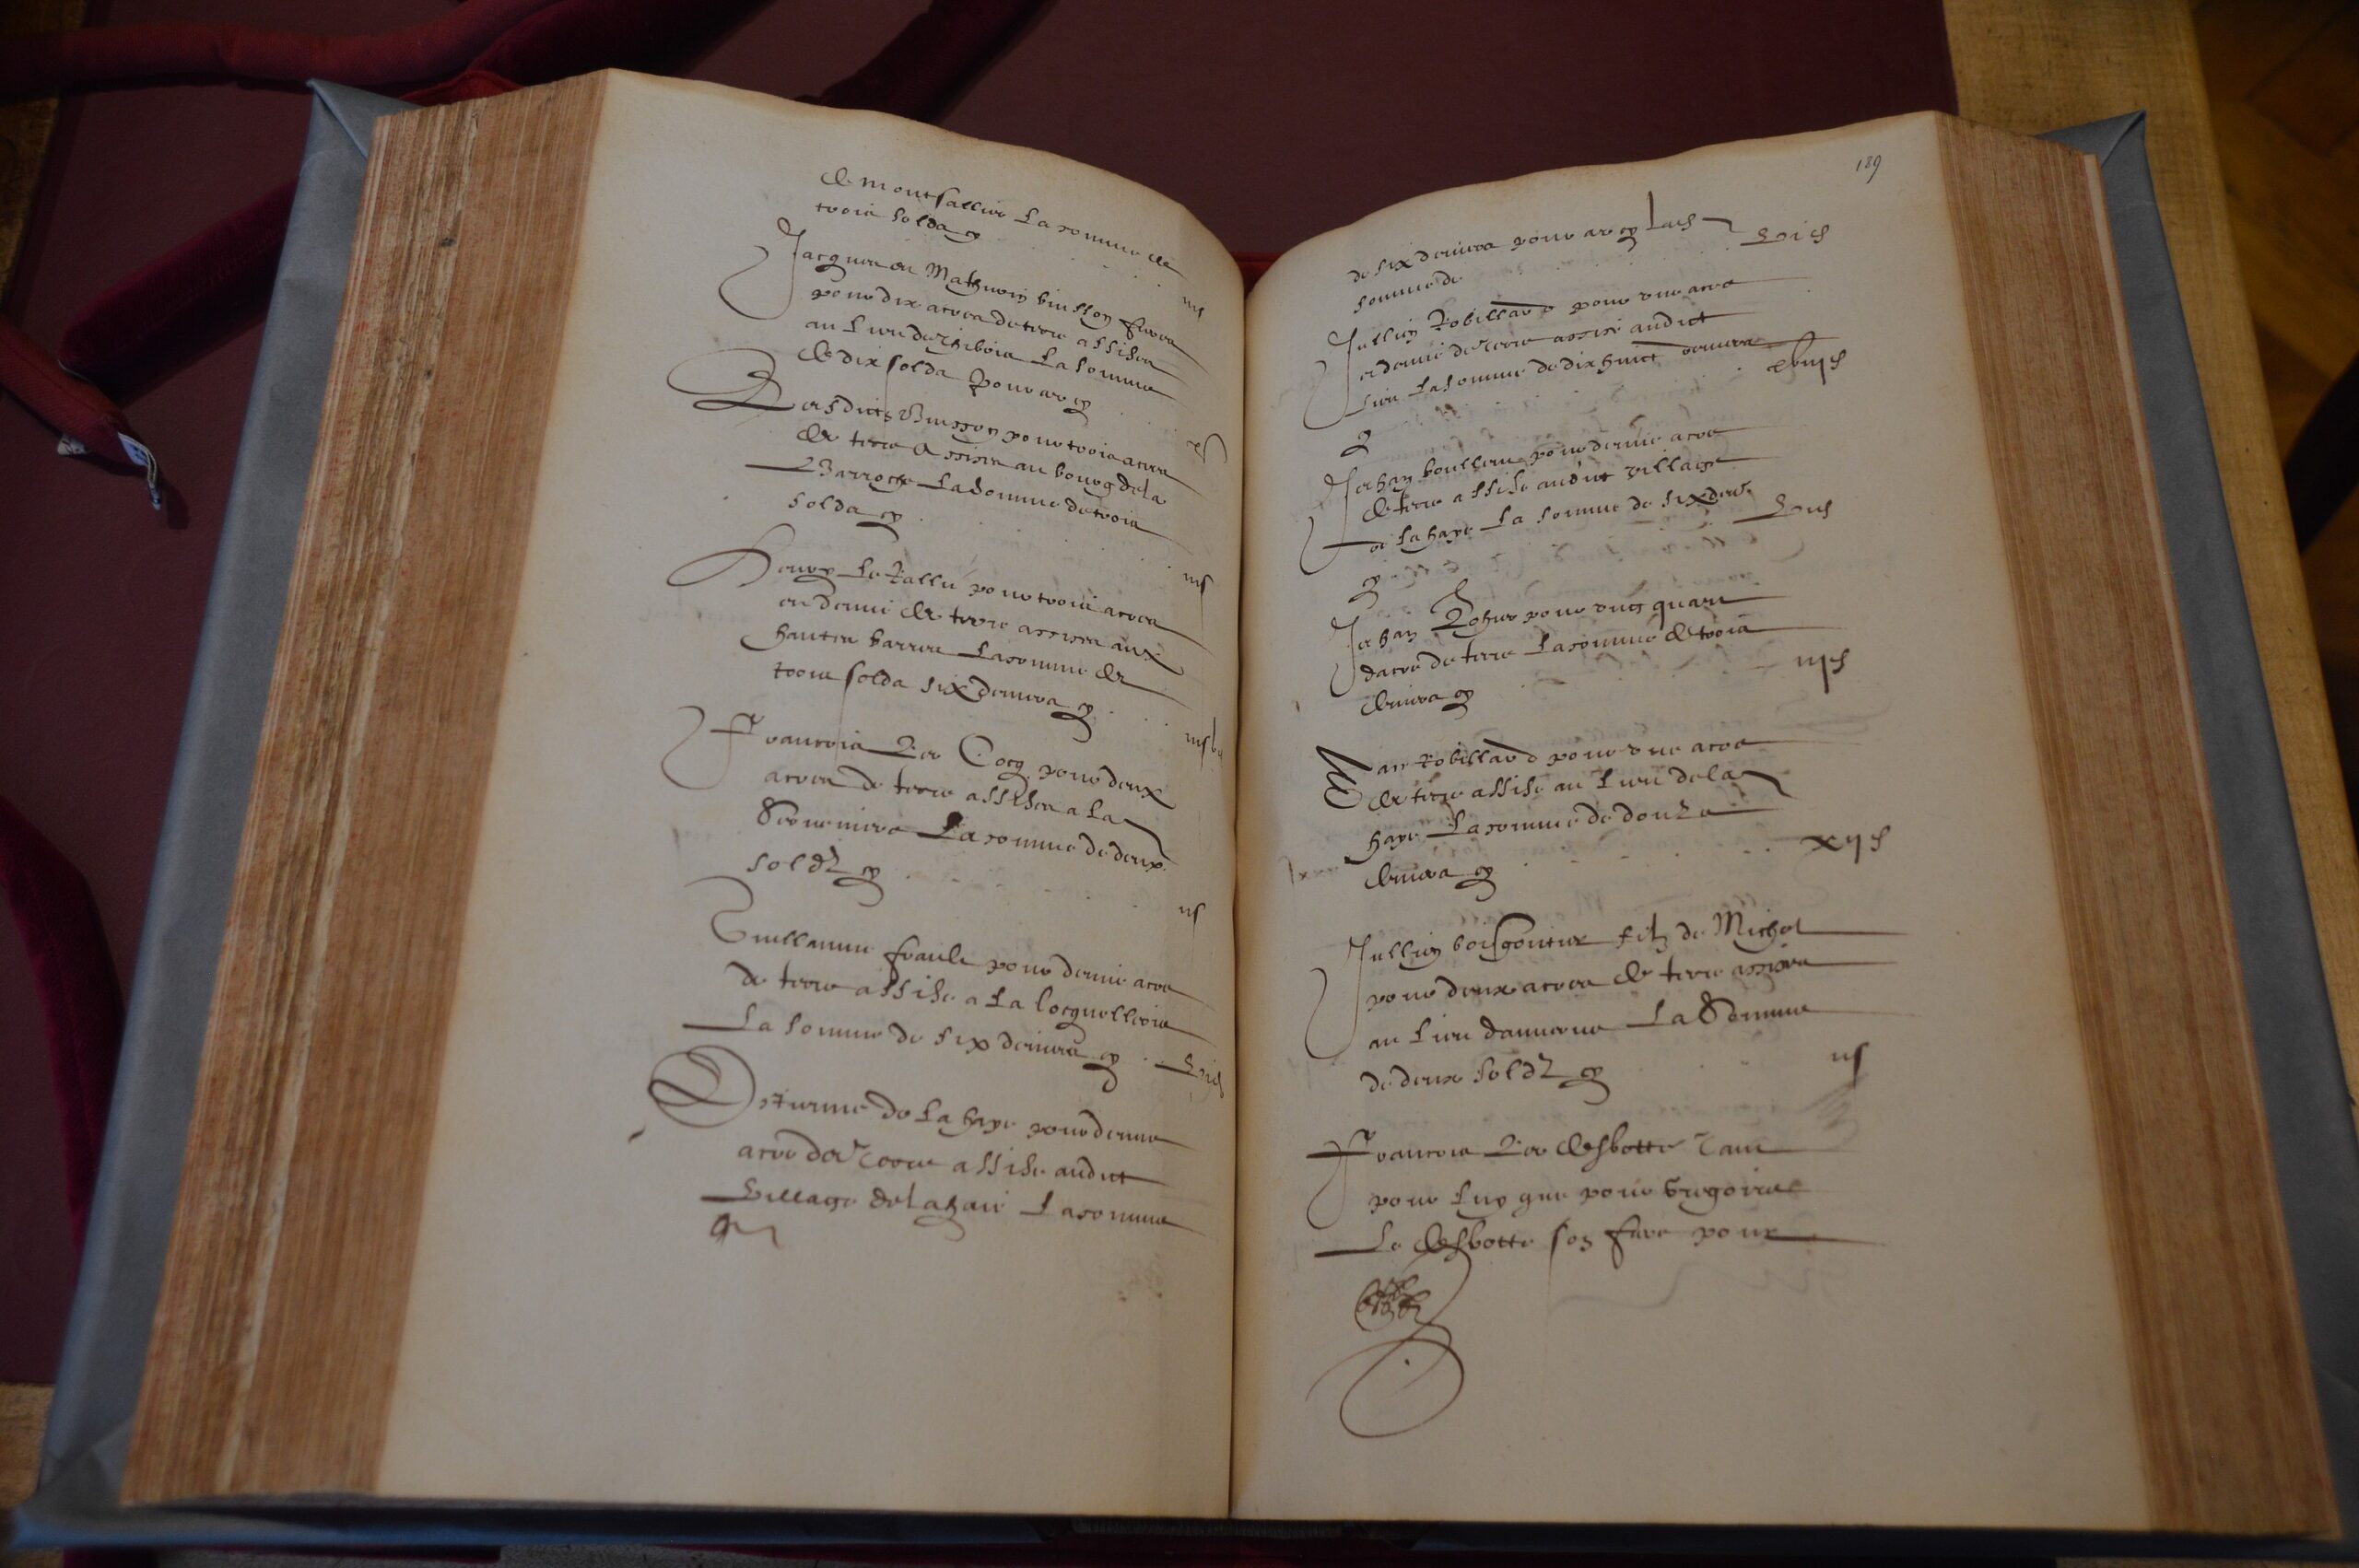 de montsallier la somme de
trois solds cy iiis
Jacques et Mathurin buisson freres
pour dix acres de terre assises
au lieu de la somme
de dix solds pour ce cy xs
Lesdicts Buisson pour trois acres
de terre assises au bourg de la
Barroche la somme de trois
solds cy iiis
Henry Le Rallu pour trois acres
et demie de terre assises aux
haultes barres la somme de
trois solds six deniers cy
Francois Le Cocq pour deux
acres de terre assises a la
la somme de deux
soldz cy iis
Guillaume fraule pour demie acre
de terre assise a la
la somme de six deniers cy vid
de la haye pour demie
acre de terre assise audict
village de la haie la somme
189
de six deniers pour ce cy lad
somme de vid
Jullien Robillard pour une acre
et demie de terre assise audict
lieu la somme de dix huict deniers
cy xviiid
Jehan boullere pour demie acre
de terre assise audict village
de la haye la somme de six den
cy vid
Jehan pour ung quart
dacre de terre la somme de trois
deniers cy iiid
Robillard pour une acre
de terre assise au lieu de la
haye la somme de douze
deniers cy xiid
Jullien boisgontier filz de Michel
pour deux acres de terre assises
au lieu la somme
de deux soldz cy iis
Francois Le desbotte tant
pour luy que pour Gregoire
Le desbotte son frere pour